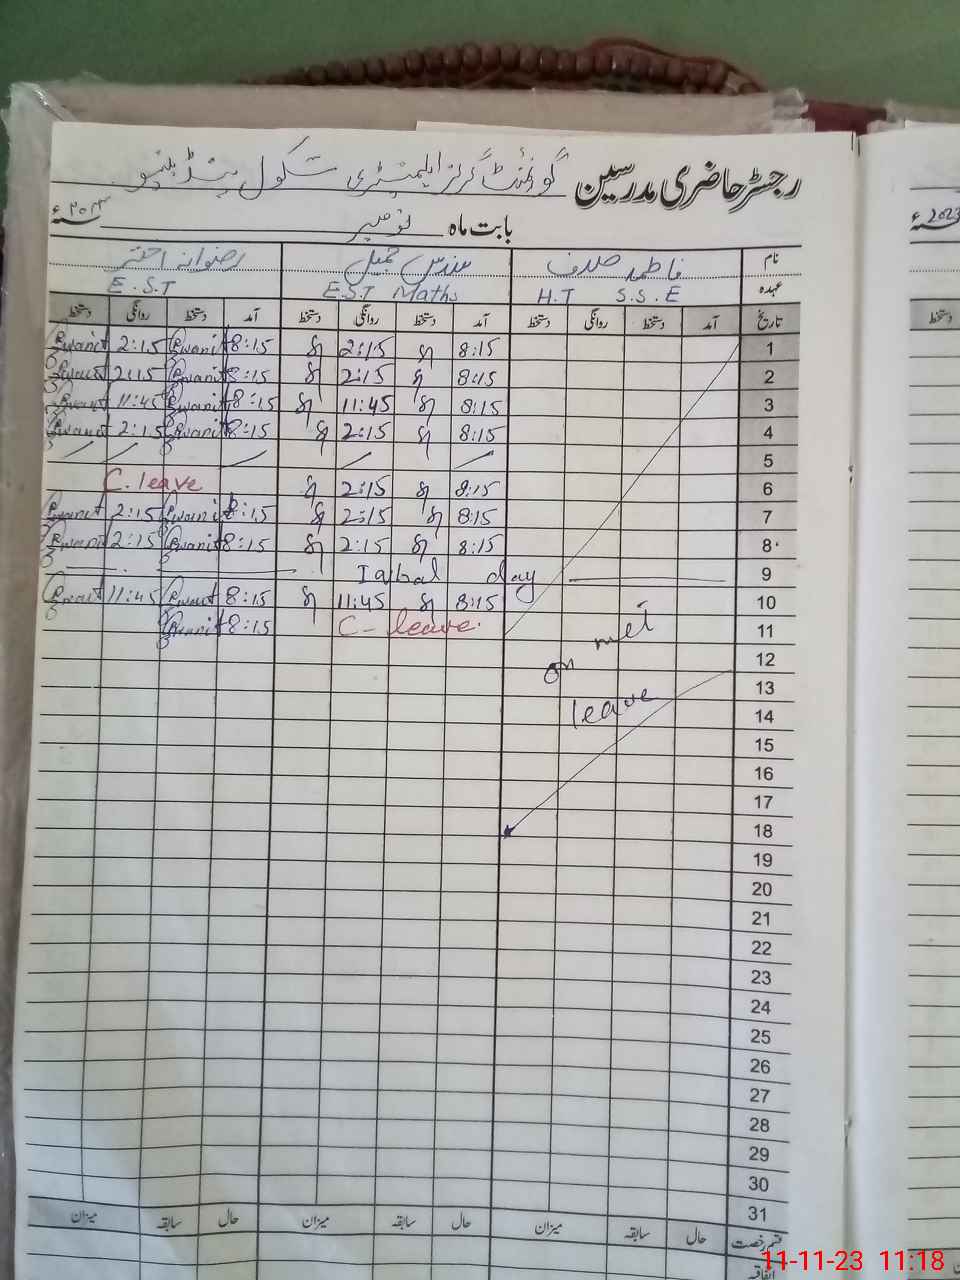 رجسٹر حاضری مدرسین گورنمنٹ گرلز ایلیمنٹری سکول پنڈ
بابت ماہ نومبر ۲۰۲۳ء
نام فاطمہ سندس جمیل رضوانہ اختر
عہدہ H.T S.S.E E.S.T Maths E.S.T
تاریخ آمد دستخط روانگی دستخط آمد دستخط روانگی دستخط آمد دستخط روانگی دستخط
1 8:15 2:15 8:15 2:15
2 8:15 2:15 8:15 2:15
3 8:15 11:45 8:15 11:45
4 8:15 2:15 8:15 2:15
5
6 8:15 2:15 C. leave
7 8:15 2:15 8:15 2:15
8 8:15 2:15 8:15 2:15
9 Iqbal day
10 8:15 11:45 8:15 11:45
11 C- leave 8:15
on leave
12
13
14
15
16
17
18
19
20
21
22
23
24
25
26
27
28
29
30
31
قسم رخصت حال سابقہ میزان حال سابقہ میزان حال سابقہ میزان
اتفاقیہ
2023ء
دستخط
11-11-23 11:18